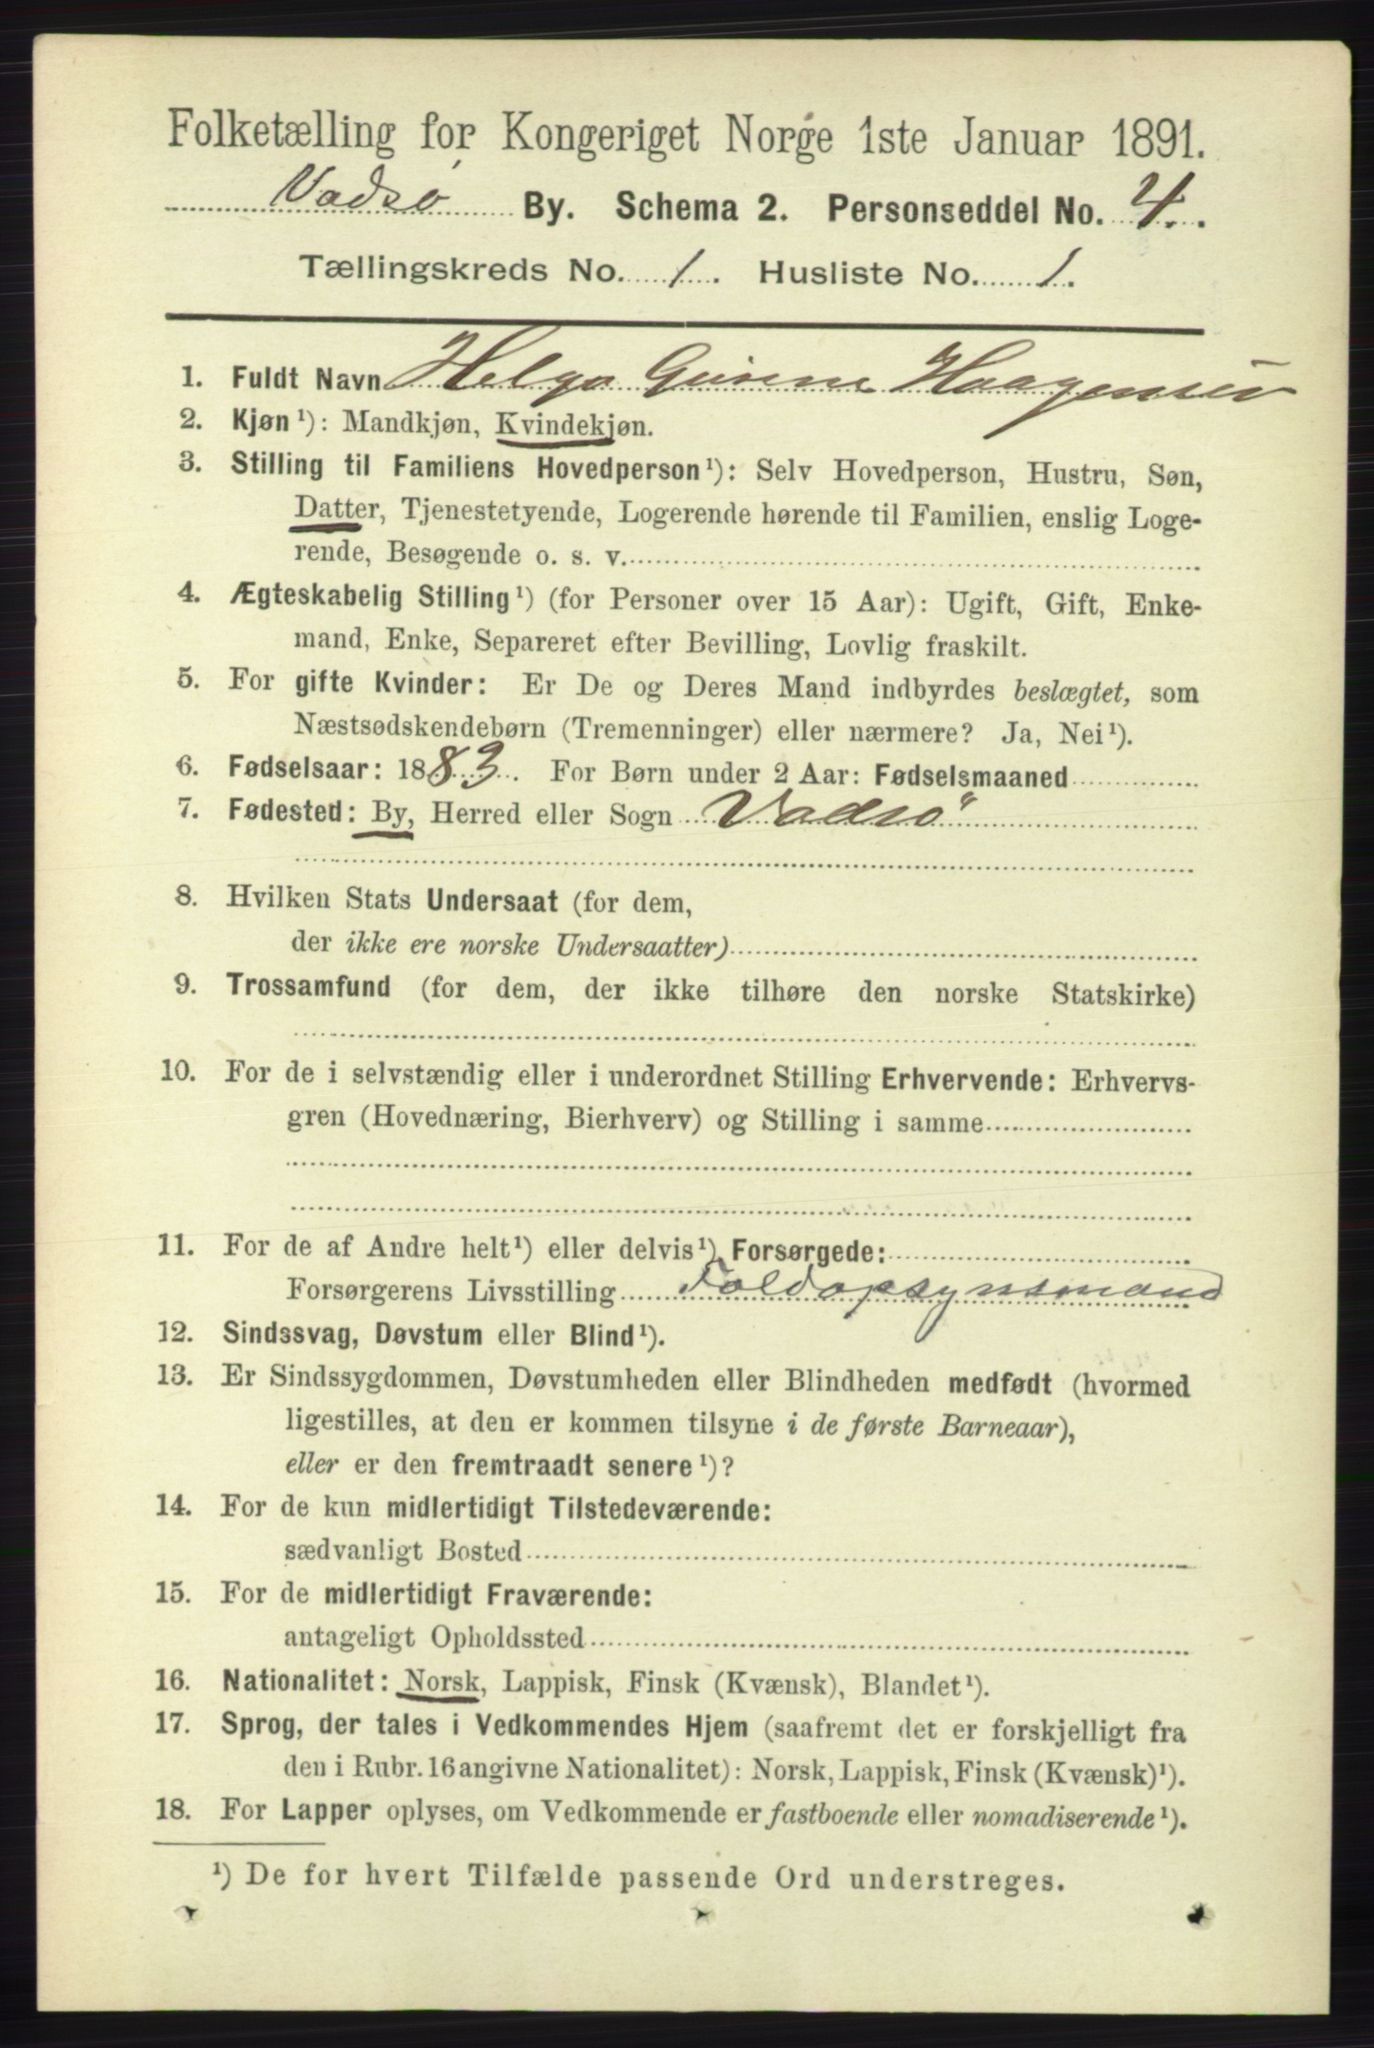 Folketælling for Kongeriget Norge 1ste Januar 1891.
Vadsø By. Schema 2. Personseddel No. 4.
Tællingskreds No. 1. Husliste No. 1.
1. Fuldt Navn Helga Haagensen
2. Kjøn¹): Mandkjøn, Kvindekjøn.
3. Stilling til Familiens Hovedperson¹): Selv Hovedperson, Hustru, Søn,
Datter, Tjenestetyende, Logerende hørende til Familien, enslig Loge-
rende, Besøgende o. s. v.
4. Ægteskabelig Stilling¹) (for Personer over 15 Aar): Ugift, Gift, Enke-
mand, Enke, Separeret efter Bevilling, Lovlig fraskilt.
5. For gifte Kvinder: Er De og Deres Mand indbyrdes beslægtet, som
Næstsødskendebørn (Tremenninger) eller nærmere? Ja, Nei¹).
6. Fødselsaar: 1883. For Børn under 2 Aar: Fødselsmaaned
7. Fødested: By, Herred eller Sogn Vadsö
8. Hvilken Stats Undersaat (for dem,
der ikke ere norske Undersaatter)
9. Trossamfund (for dem, der ikke tilhøre den norske Statskirke)
10. For de i selvstændig eller i underordnet Stilling Erhvervende: Erhvervs-
gren (Hovednæring, Bierhverv) og Stilling i samme
11. For de af Andre helt¹) eller delvis¹) Forsørgede:
Forsørgerens Livsstilling Toldopsynsmand
12. Sindssvag, Døvstum eller Blind¹).
13. Er Sindssygdommen, Døvstumheden eller Blindheden medfødt (hvormed
ligestilles, at den er kommen tilsyne i de første Barneaar),
eller er den fremtraadt senere¹)?
14. For de kun midlertidigt Tilstedeværende:
sædvanligt Bosted
15. For de midlertidigt Fraværende:
antageligt Opholdssted
16. Nationalitet: Norsk, Lappisk, Finsk (Kvænsk), Blandet¹).
17. Sprog, der tales i Vedkommendes Hjem (saafremt det er forskjelligt fra
den i Rubr. 16 angivne Nationalitet): Norsk, Lappisk, Finsk (Kvænsk)¹).
18. For Lapper oplyses, om Vedkommende er fastboende eller nomadiserende¹).
¹) De for hvert Tilfælde passende Ord understreges.